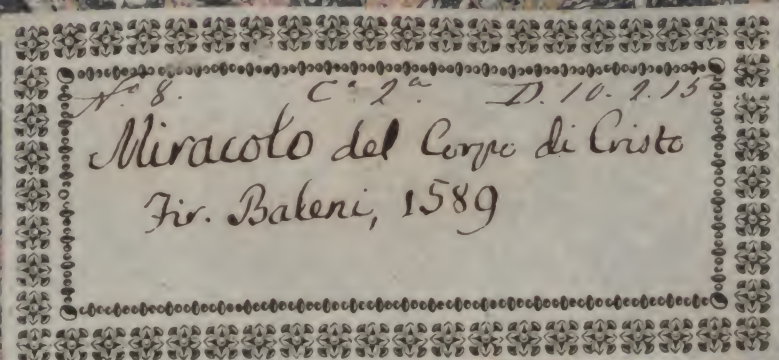 No. 8. Ca. 2a. D. 10. 2. 15
Miracolo del Corpo di Cristo
Fir. Baleni, 1589